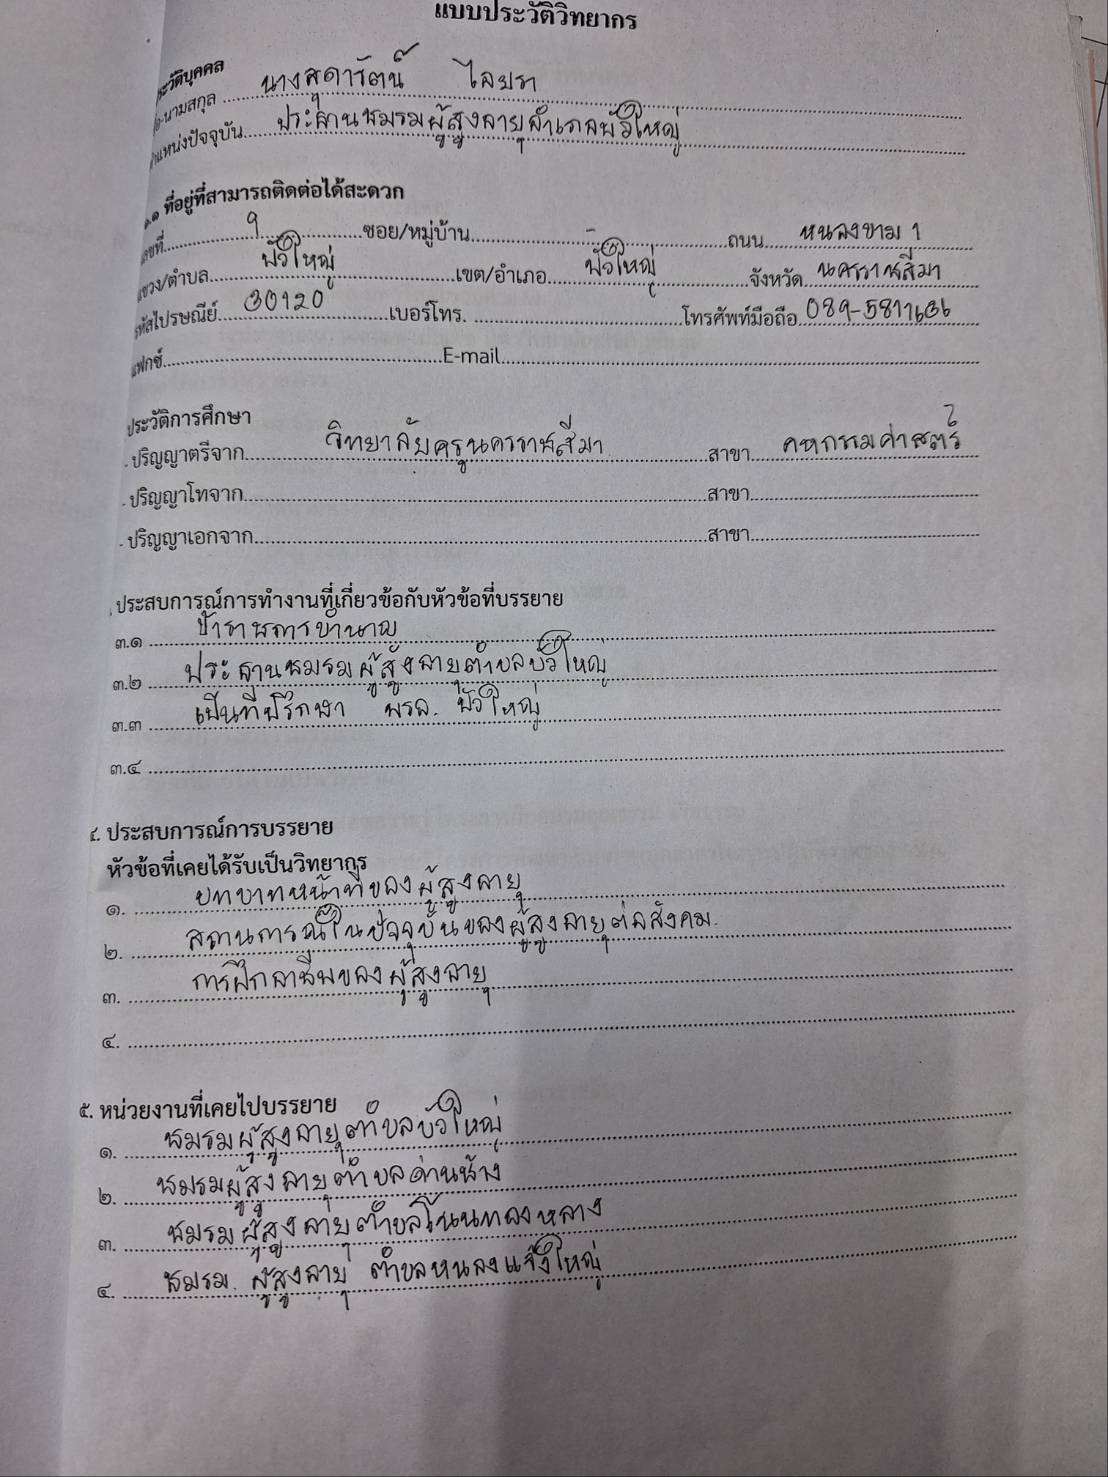 แบบประวัติวิทยากร
ประวัติบุคคล
ชื่อ-นามสกุล นางสุดารัตน์
ตำแหน่งปัจจุบัน ประธานชมรมผู้สูงอายุอำเภอบัวใหญ่
ที่อยู่ที่สามารถติดต่อได้สะดวก
เลขที่ ๑ ซอย/หมู่บ้าน - ถนน หนองขาม 1
แขวง/ตำบล บัวใหญ่ เขต/อำเภอ บัวใหญ่ จังหวัด นครราชสีมา
รหัสไปรษณีย์ 30120 เบอร์โทร. โทรศัพท์มือถือ
แฟกซ์ E-mail
ประวัติการศึกษา
- ปริญญาตรีจาก วิทยาลัยครูนครราชสีมา สาขา คหกรรมศาสตร์
- ปริญญาโทจาก สาขา
- ปริญญาเอกจาก สาขา
ประสบการณ์การทำงานที่เกี่ยวข้อกับหัวข้อที่บรรยาย
๓.๑ ข้าราชการบำนาญ
๓.๒ ประธานชมรมผู้สูงอายุตำบลบัวใหญ่
๓.๓ เป็นที่ปรึกษา พรอ. บัวใหญ่
๓.๔
๔. ประสบการณ์การบรรยาย
หัวข้อที่เคยได้รับเป็นวิทยากร
๑. บทบาทหน้าที่ของผู้สูงอายุ
๒. สถานการณ์ในปัจจุบันของผู้สูงอายุต่อสังคม.
๓. การฝึกอาชีพของผู้สูงอายุ
๔.
๕. หน่วยงานที่เคยไปบรรยาย
๑. ชมรมผู้สูงอายุตำบลบัวใหญ่
๒. ชมรมผู้สูงอายุตำบลด่านช้าง
๓. ชมรมผู้สูงอายุตำบลโนนทองหลาง
๔. ชมรม. ผู้สูงอายุ ตำบลหนองแจ้งใหญ่